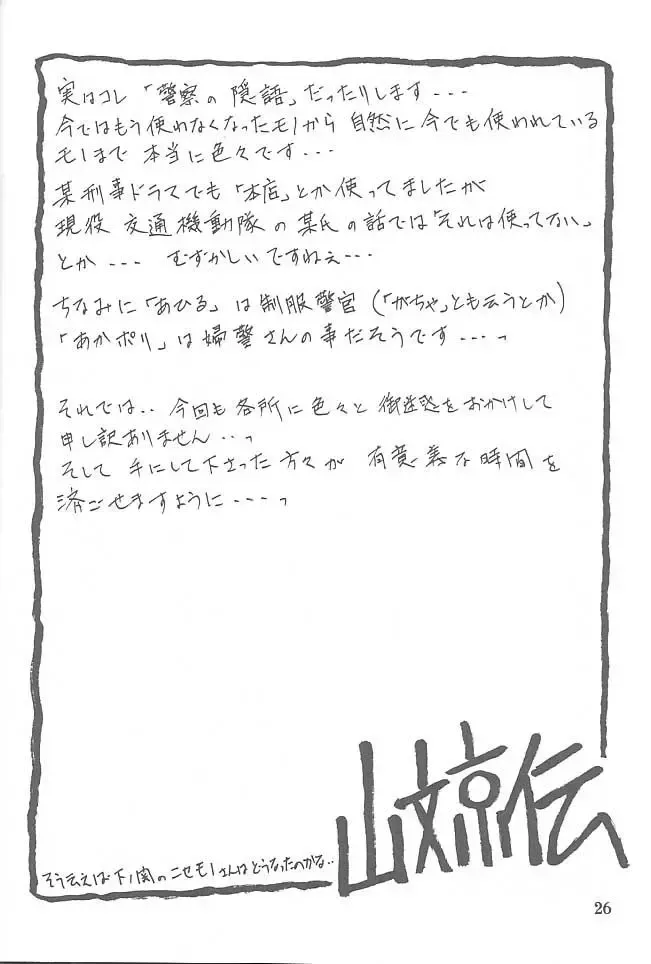 実はコレ「警察の隠語」だったりします---
今ではもう使われなくなったモノから 自然に今でも使われている
モノまで 本当に色々です---
某刑事ドラマでも「本店」とか使ってましたが
現役 交通機動隊の某氏の話では「それは使ってない」
とか--- むずかしいですねぇ---
ちなみに「あひる」は制服警官(「がちゃ」とも云うとか)
「あかポリ」は婦警さんの事だそうです---っ
それでは.. 今回も各所に色々と御迷惑をおかけして
申し訳ありません...っ
そして 手にして下さった方々が 有意義な時間を
済ごせますように----っ
山文京伝
そう云えば下ノ関のニセモノさんはどうなったのかな..
26